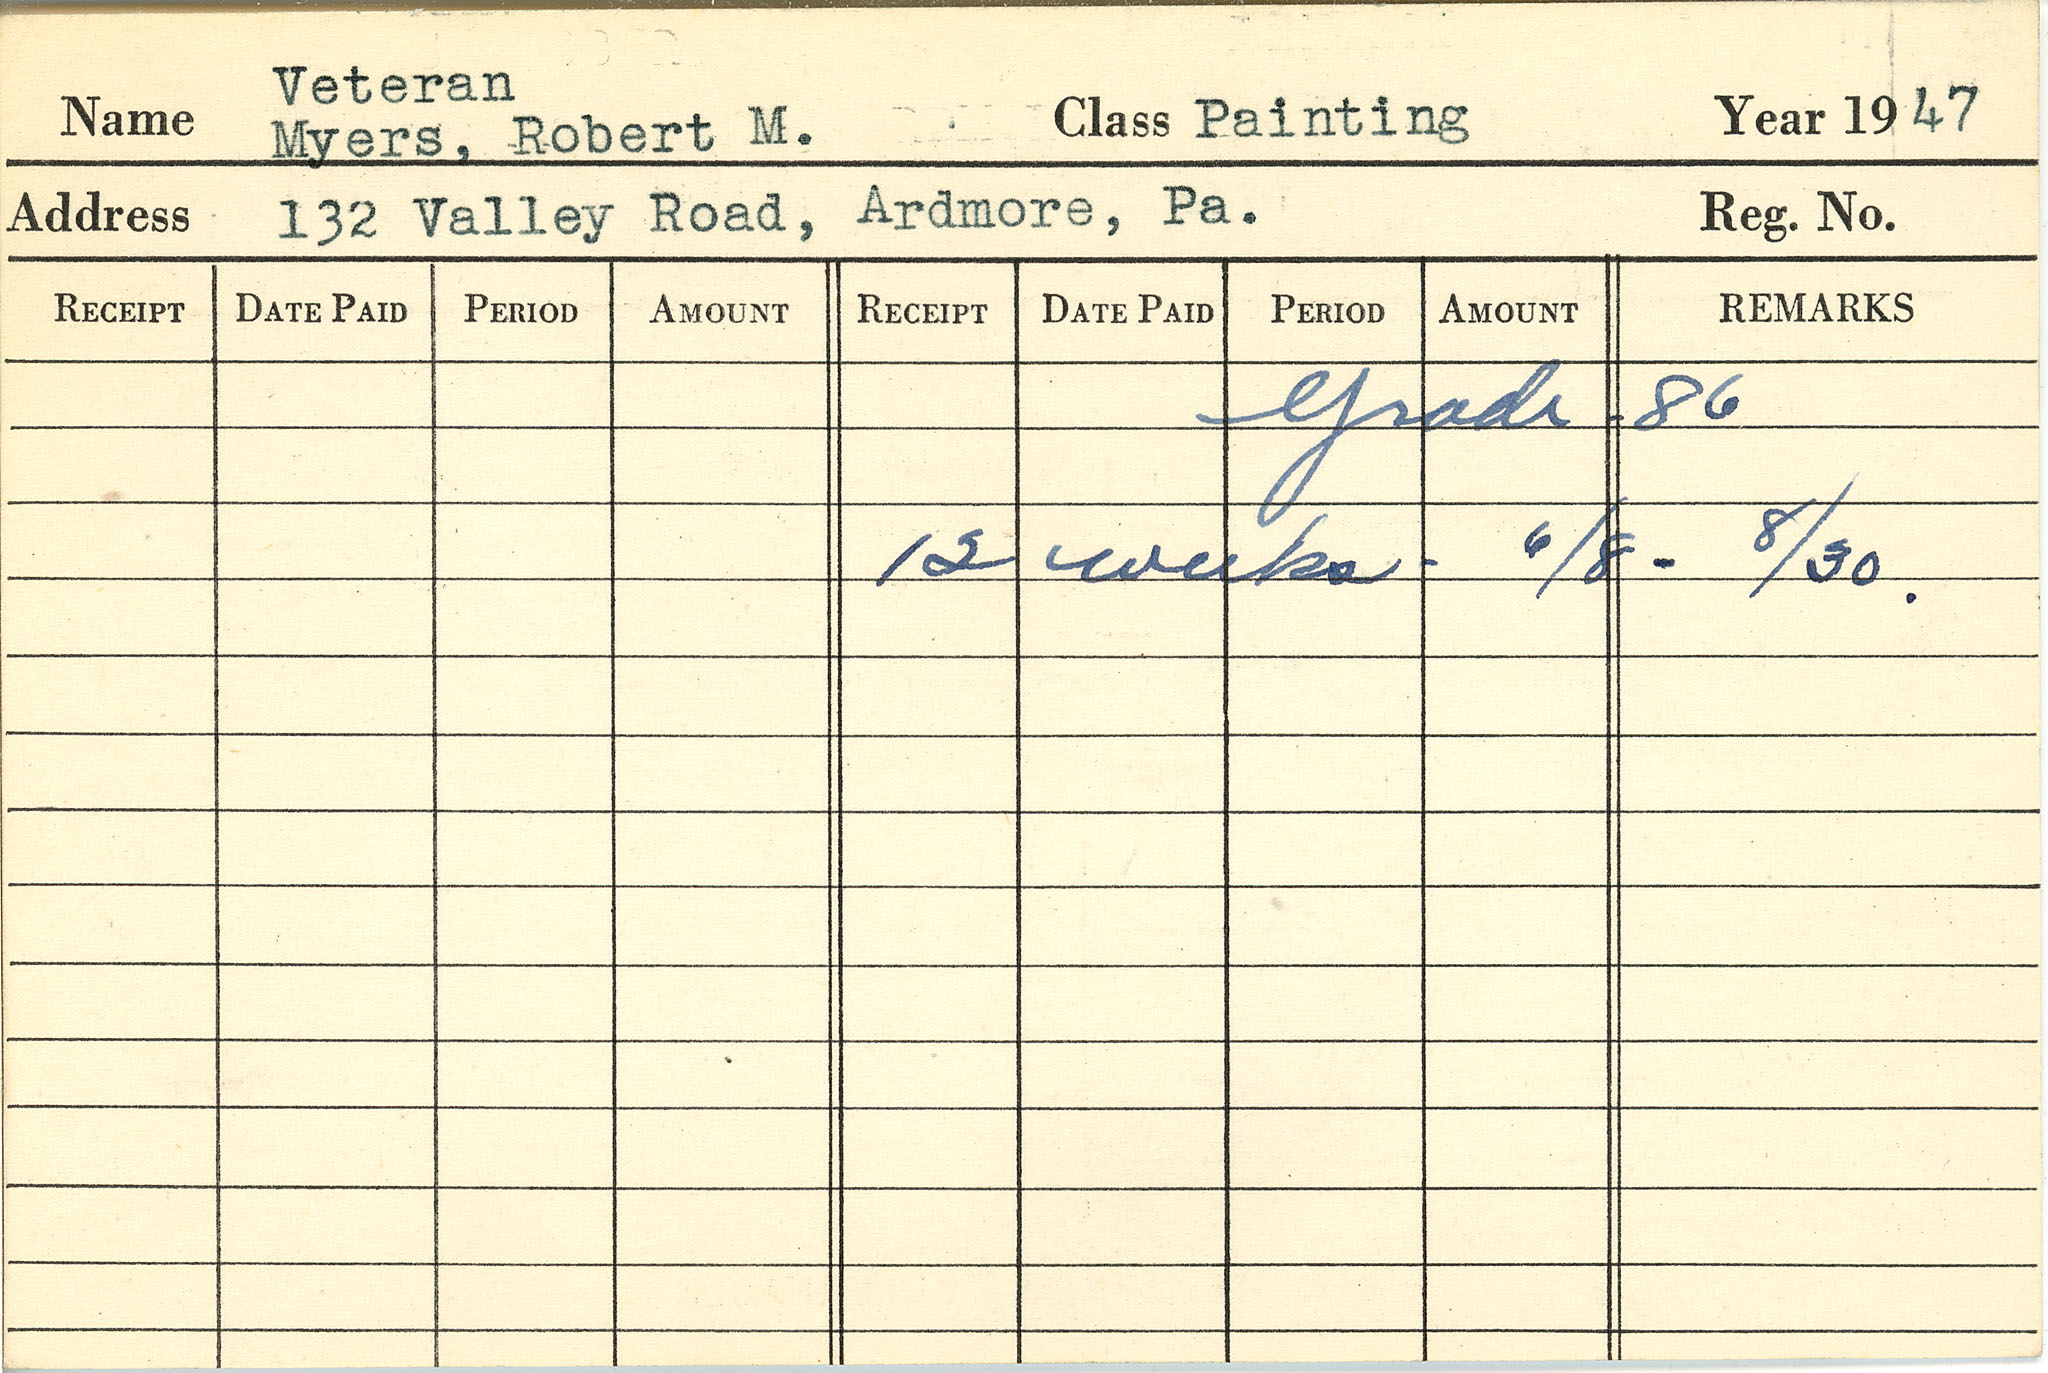 Veteran
Name Myers, Robert M. Class Painting Year 1947
Address 132 Valley Road, Ardmore, Pa. Reg. No.
RECEIPT DATE PAID PERIOD AMOUNT RECEIPT DATE PAID PERIOD AMOUNT REMARKS
Grade - 86
12 weeks - 6/8 - 8/30.